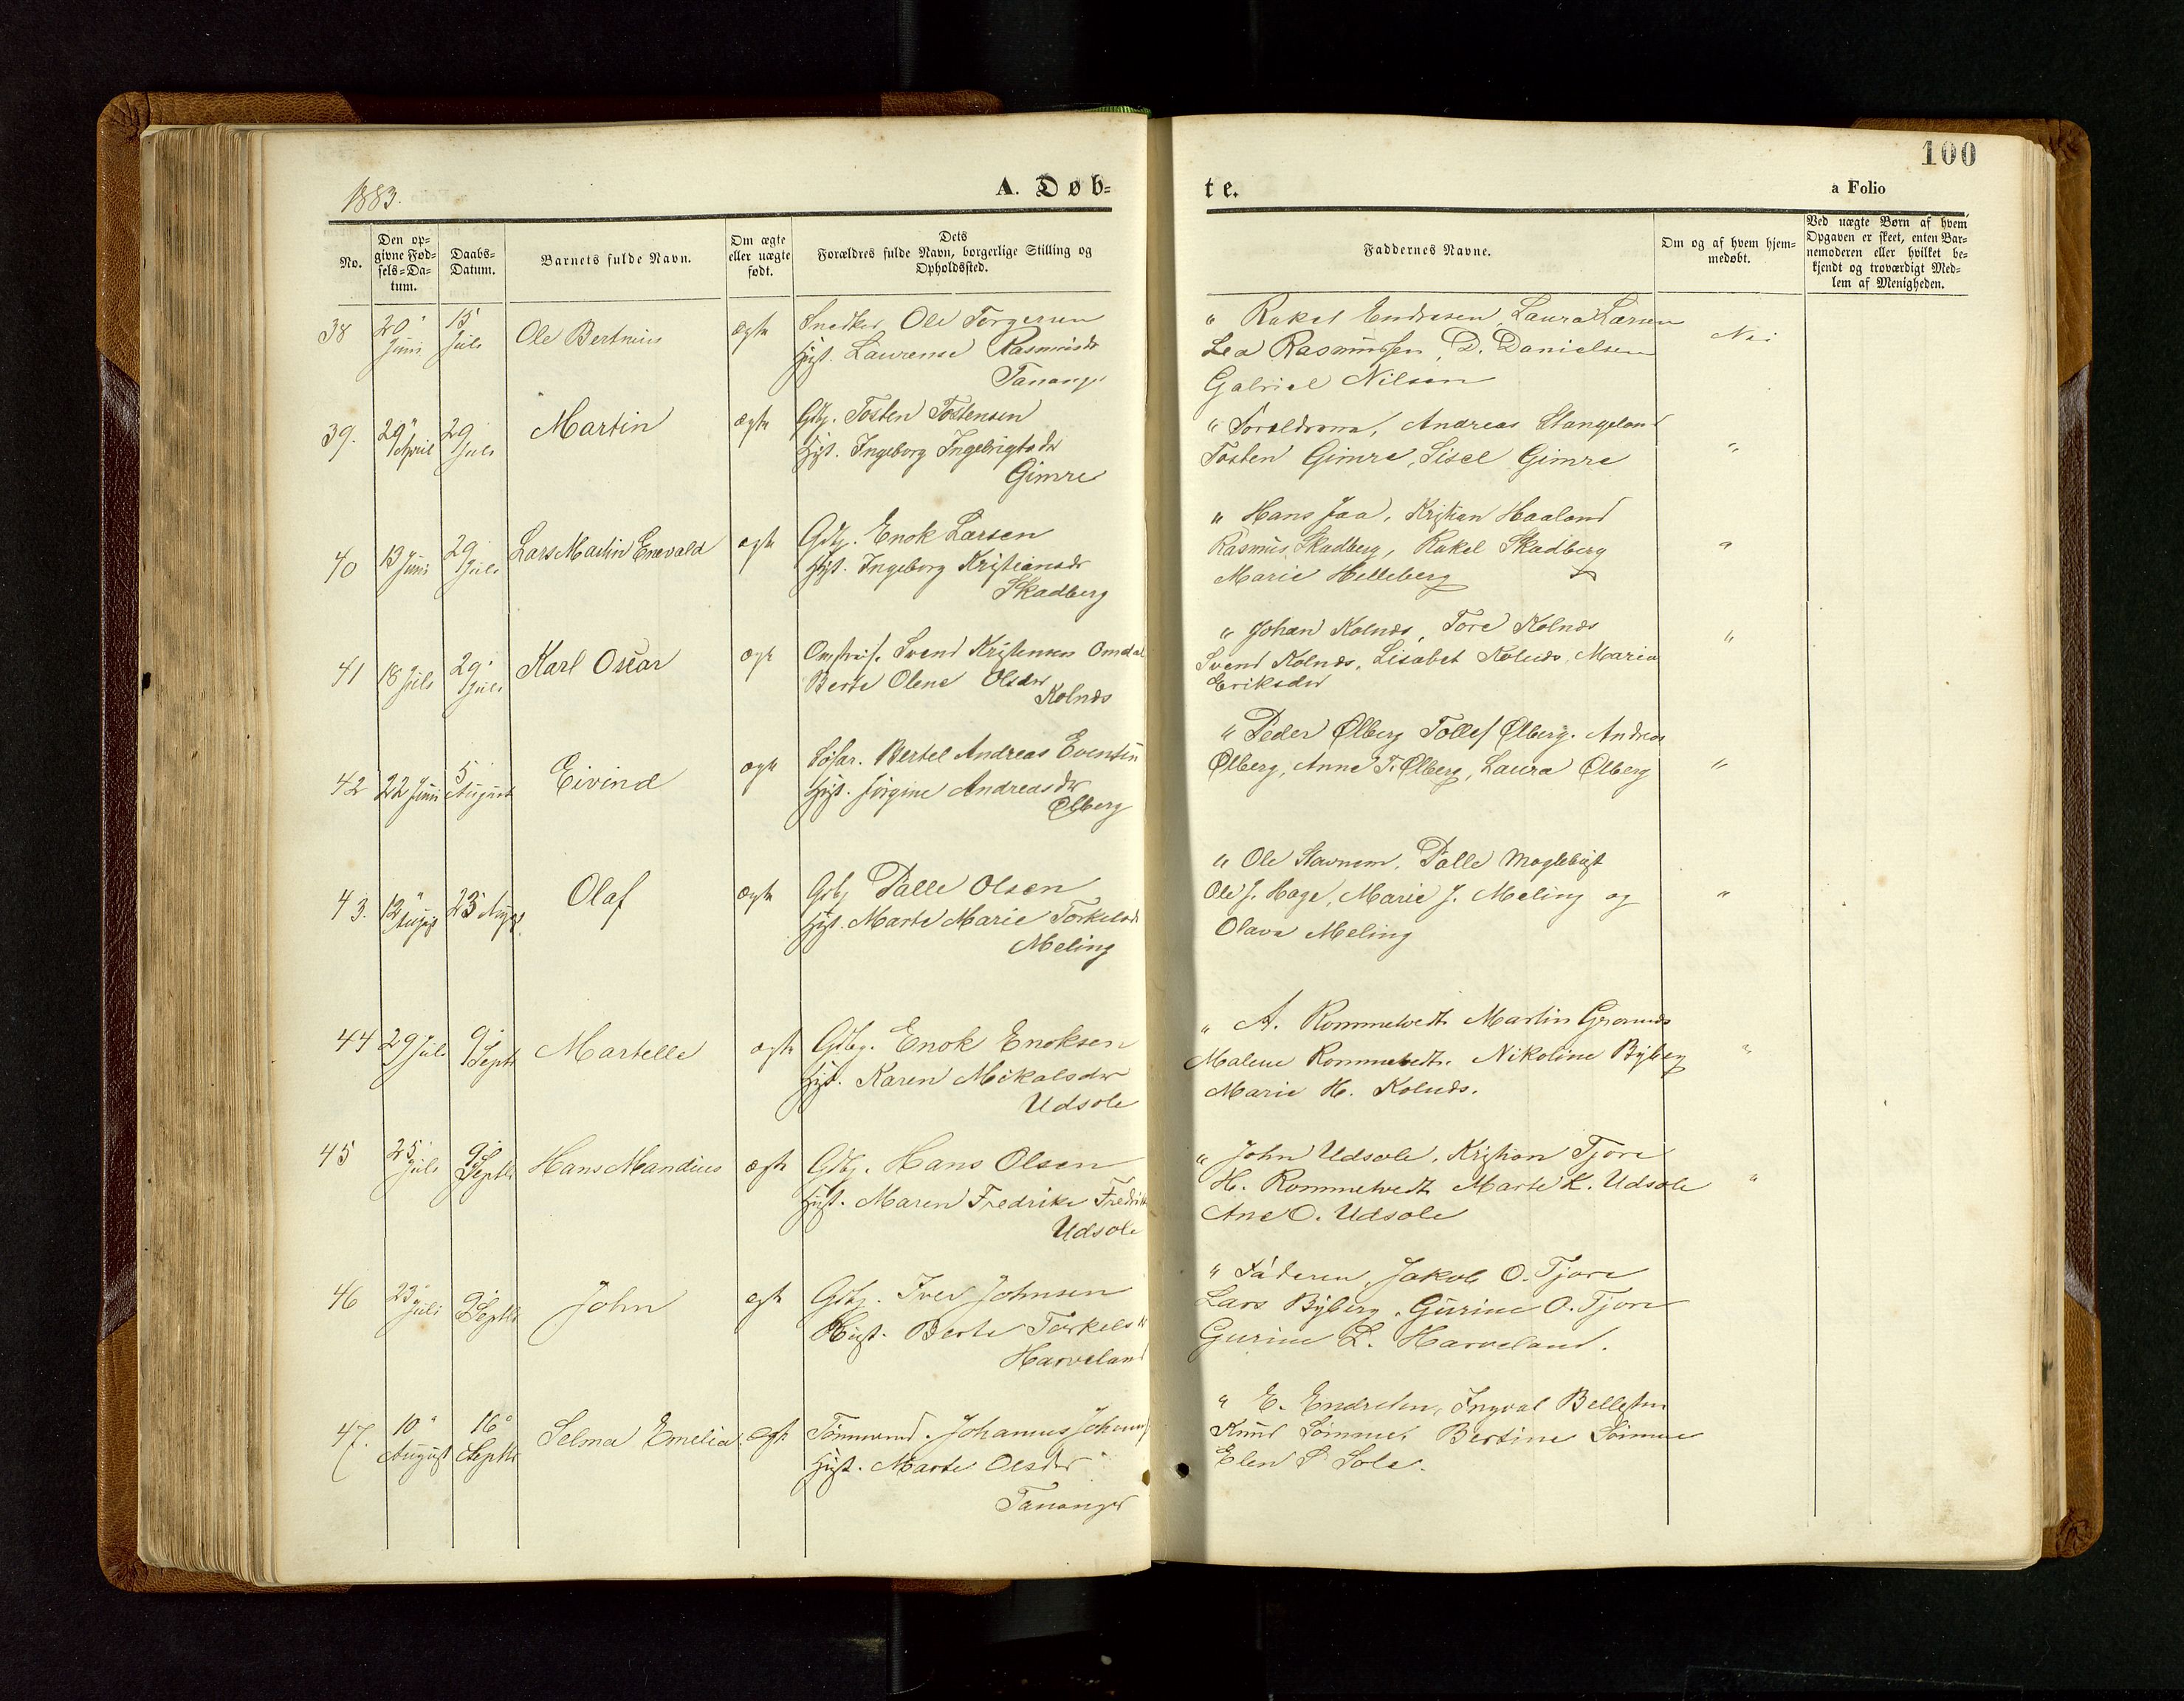 100
1883.
A. Døb=
te.
a Folio
No.
Den op=
givne Fød=
sels=Da=
tum.
Daabs=
Datum.
Barnets fulde Navn.
Om ægte
eller uægte
født.
Dets
Forældres fulde Navn, borgerlige Stilling og
Opholdssted.
Faddernes Navne.
Om og af hvem hjem=
medøbt.
Ved uægte Børn af hvem
Opgaven er skeet, enten Bar=
nemoderen eller hvilket be=
kjendt og troværdigt Med=
lem af Menigheden.
38 20 Juni 15 Juli Ole Bertnius ægte Snedker Ole Torgersen
Hust. Laurense Rasmusdr
Tananger
" Rakel Endresen, Laura Larsen
Lea Rasmussen, D. Danielsen
Gabriel Nilsen
Nei
39. 29 April 29 Juli Martin ægte Gdbg. Tosten Tostensen
Hust. Ingeborg Ingebrigtsdr
Gimre
" Foreldrene, Andreas Stangeland
Tosten Gimre, Sisel Gimre
"
40 13 Juni 29 Juli Lars Martin Enevald ægte Gdbg. Enok Larsen
Hust. Ingeborg Kristiansdr
Skadberg
" Hans Jaa, Kristian Haaland
Rasmus Skadberg, Rakel Skadberg
Marie Helleberg
"
41 18 Juli 29 Juli Karl Oscar ægte Svend Kristensen Omdal
Berte Olene Olsdr
Kolnæs
" Johan Kolnæs, Tore Kolnæs
Svend Kolnæs, Lisabet Kolnæs, Maria
Eriksdr
"
42 22 Juni 5 August Eivind ægte Bertel Andreas
Hust. Jørgine Andreasdr
Ølberg
" Peder Ølberg Tollef Ølberg. Andreas
Ølberg, Anne T. Ølberg, Laura Ølberg
"
43. 12 August 23 Aug Olaf ægte Gdbg Palle Olsen
Hust. Marte Marie Torkelsdr
Meling
" Ole Stavnem, Palle
Ole J. Hage, Marie J. Meling og
Olava Meling
"
44 29 Juli 9 Septb Martelle ægte Gdbg. Enok Enoksen
Hust. Karen Mikalsdr
Udsole
" A. Rommetvedt Martin Grannæs
Malene Rommetvedt. Nikoline Byberg
Marie H. Kolnæs.
"
45 25 Juli 9 Septb Hans Mandius ægte Gdbg. Hans Olsen
Hust. Maren Fredrike Fredrik
Udsole
" John Udsole, Kristian Tjore
H. Rommetvedt Marte K. Udsole
Ane O. Udsole
"
46 23 Juli 9 Septb John ægte Gdbg. Iver Johnsen
Hust. Berte Torkelsdr
Harveland
" Faderen, Jakob O. Tjore
Lars Byberg, Gurine O. Tjore
Gurine L. Harveland.
47. 10 August 16 Septbr Selma Emelia ægte Tømmermd. Johannes Johannes
Hust. Marte Olsdr
Tananger
" E. Endresen, Ingval
Knud Sømme, Bertine Sømme
Elen S Sole.